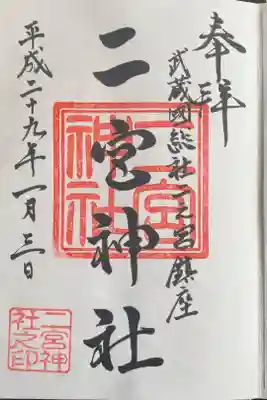 奉拝
武蔵國総社二之宮鎮座
二宮神社
二宮神社
平成二十九年一月三日
二宮神
社之印